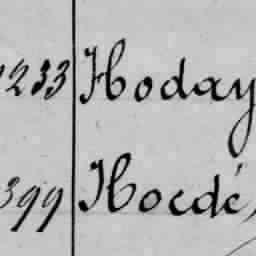 1233 Hoday
399 Hoedé,